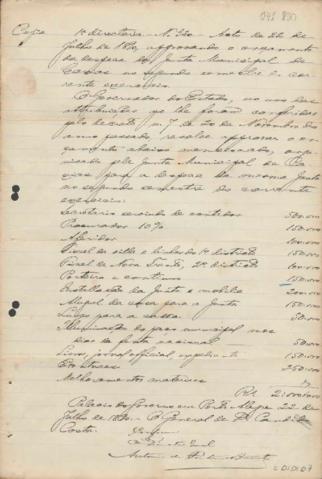 Copia
1ª directoria - Nº 220 - Acto de 22 de
Julho de 1890, approvando o orçamento
da despeza da Junta Municipal de
Caxias no segundo semestre do cor-
rente exercicio.
O Governador do Estado, no uso das
attribuições que lhe foram conferidas
pelo decreto n. 7 de 20 de Novembro do
anno passado, resolve approvar o or-
çamento abaixo mencionado, orga-
nisado pela Junta Municipal de Ca-
xias, para a despeza da mesma Junta
no segundo semestre do corrente
exercicio:
Secretario servindo de contador
Procurador 10% 150.000
Aferidor 100.000
Fiscal da villa e linhas do 1º districto 150.000
Fiscal da Nova Trento, 2º districto
Porteiro e continuo 150.000
Installação da Junta e mobilia 200.000
Aluguel da casa para a Junta 150.000
Illuminação do paço municipal nos
dias de festa nacional 50.000
Livros, jornal official, expediente 150.000
Eventuaes 250.000
Melhoramentos materiaes
Palacio do Governo em Porto Alegre 22 de
Julho de 1890. O General de Dª Candido
Costa.